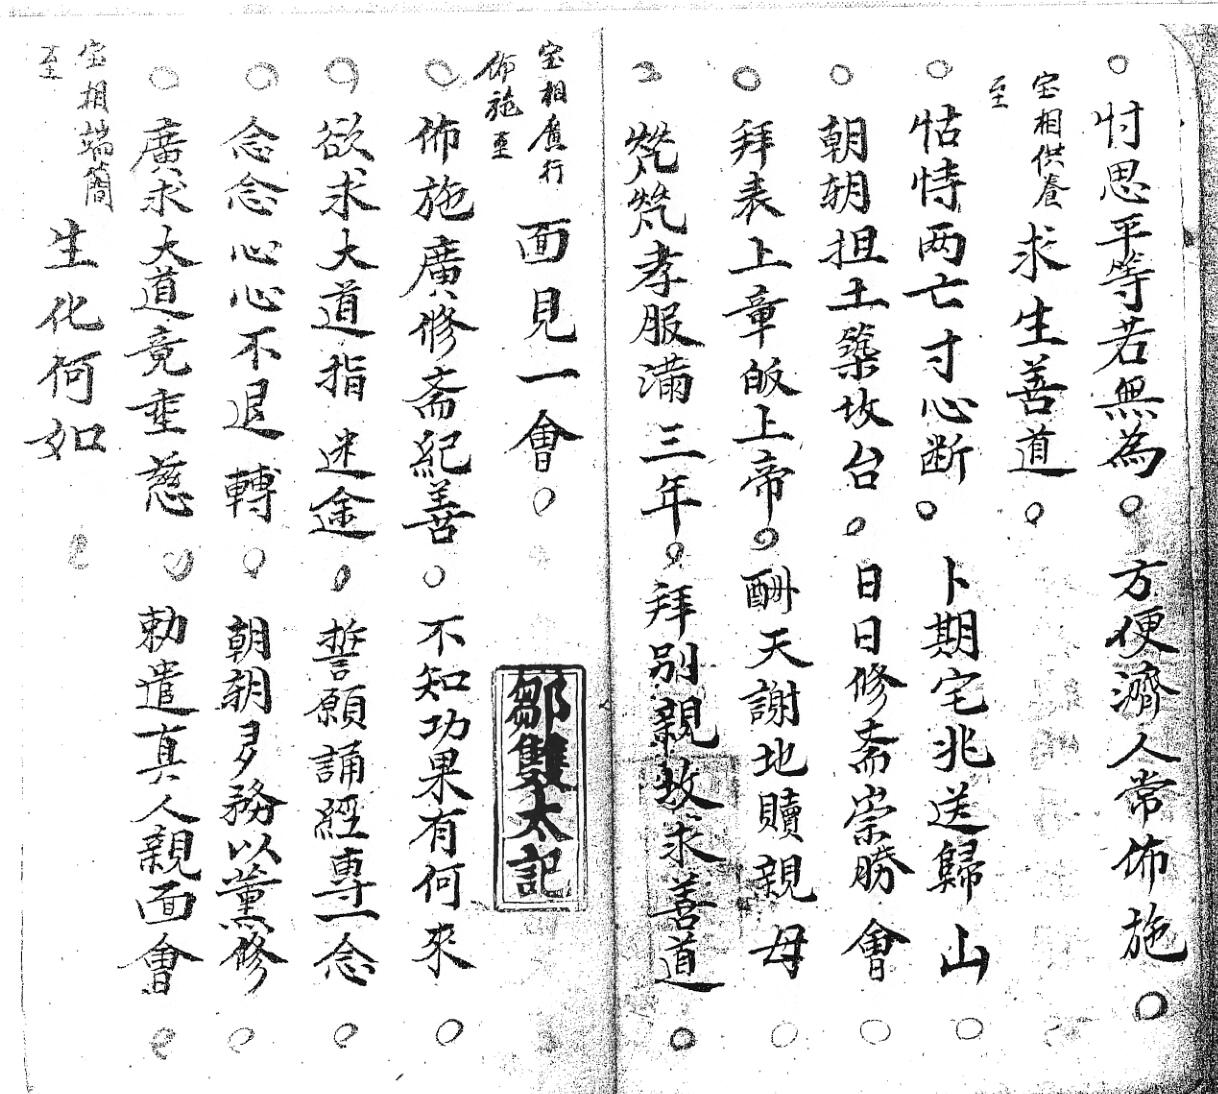 忖思平等若無為。方便濟人常佈施。
宝相供養至 求生善道。
怙恃两亡寸心断。卜期宅兆送歸山
朝朝担土築坟台。日日修斋崇勝會
拜表上章皈上帝。酬天謝地贖親母
煢煢孝服满三年。拜別親坟求善道
宝相廣行佈施至 面見一會。
鄒雙太記
佈施廣修斋紀善。不知功果有何來
欲求大道指迷途。誓願誦經專一念
念念心心不退轉。朝朝多務以薰修
廣求大道竟垂慈。勅遣真人親面會
宝相端簡至 生化何如